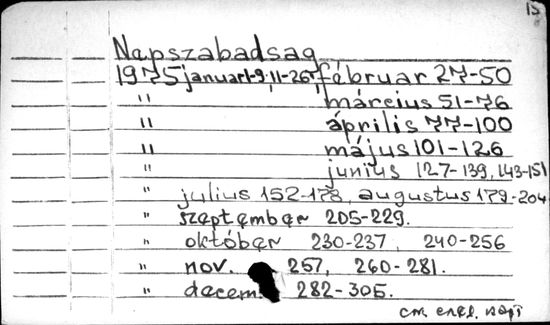 15
Napszabadsag
1975 januar 1-9, 11-26, fábruar 27-50
" március 51-76
" április 77-100
" május 101-126
" junius 127-139, 143-151
" julius 152-178, augustus 179-204
" szeptember 205-229.
" október 230-237, 240-256
" nov. 257, 260-281.
" decem 282-305.